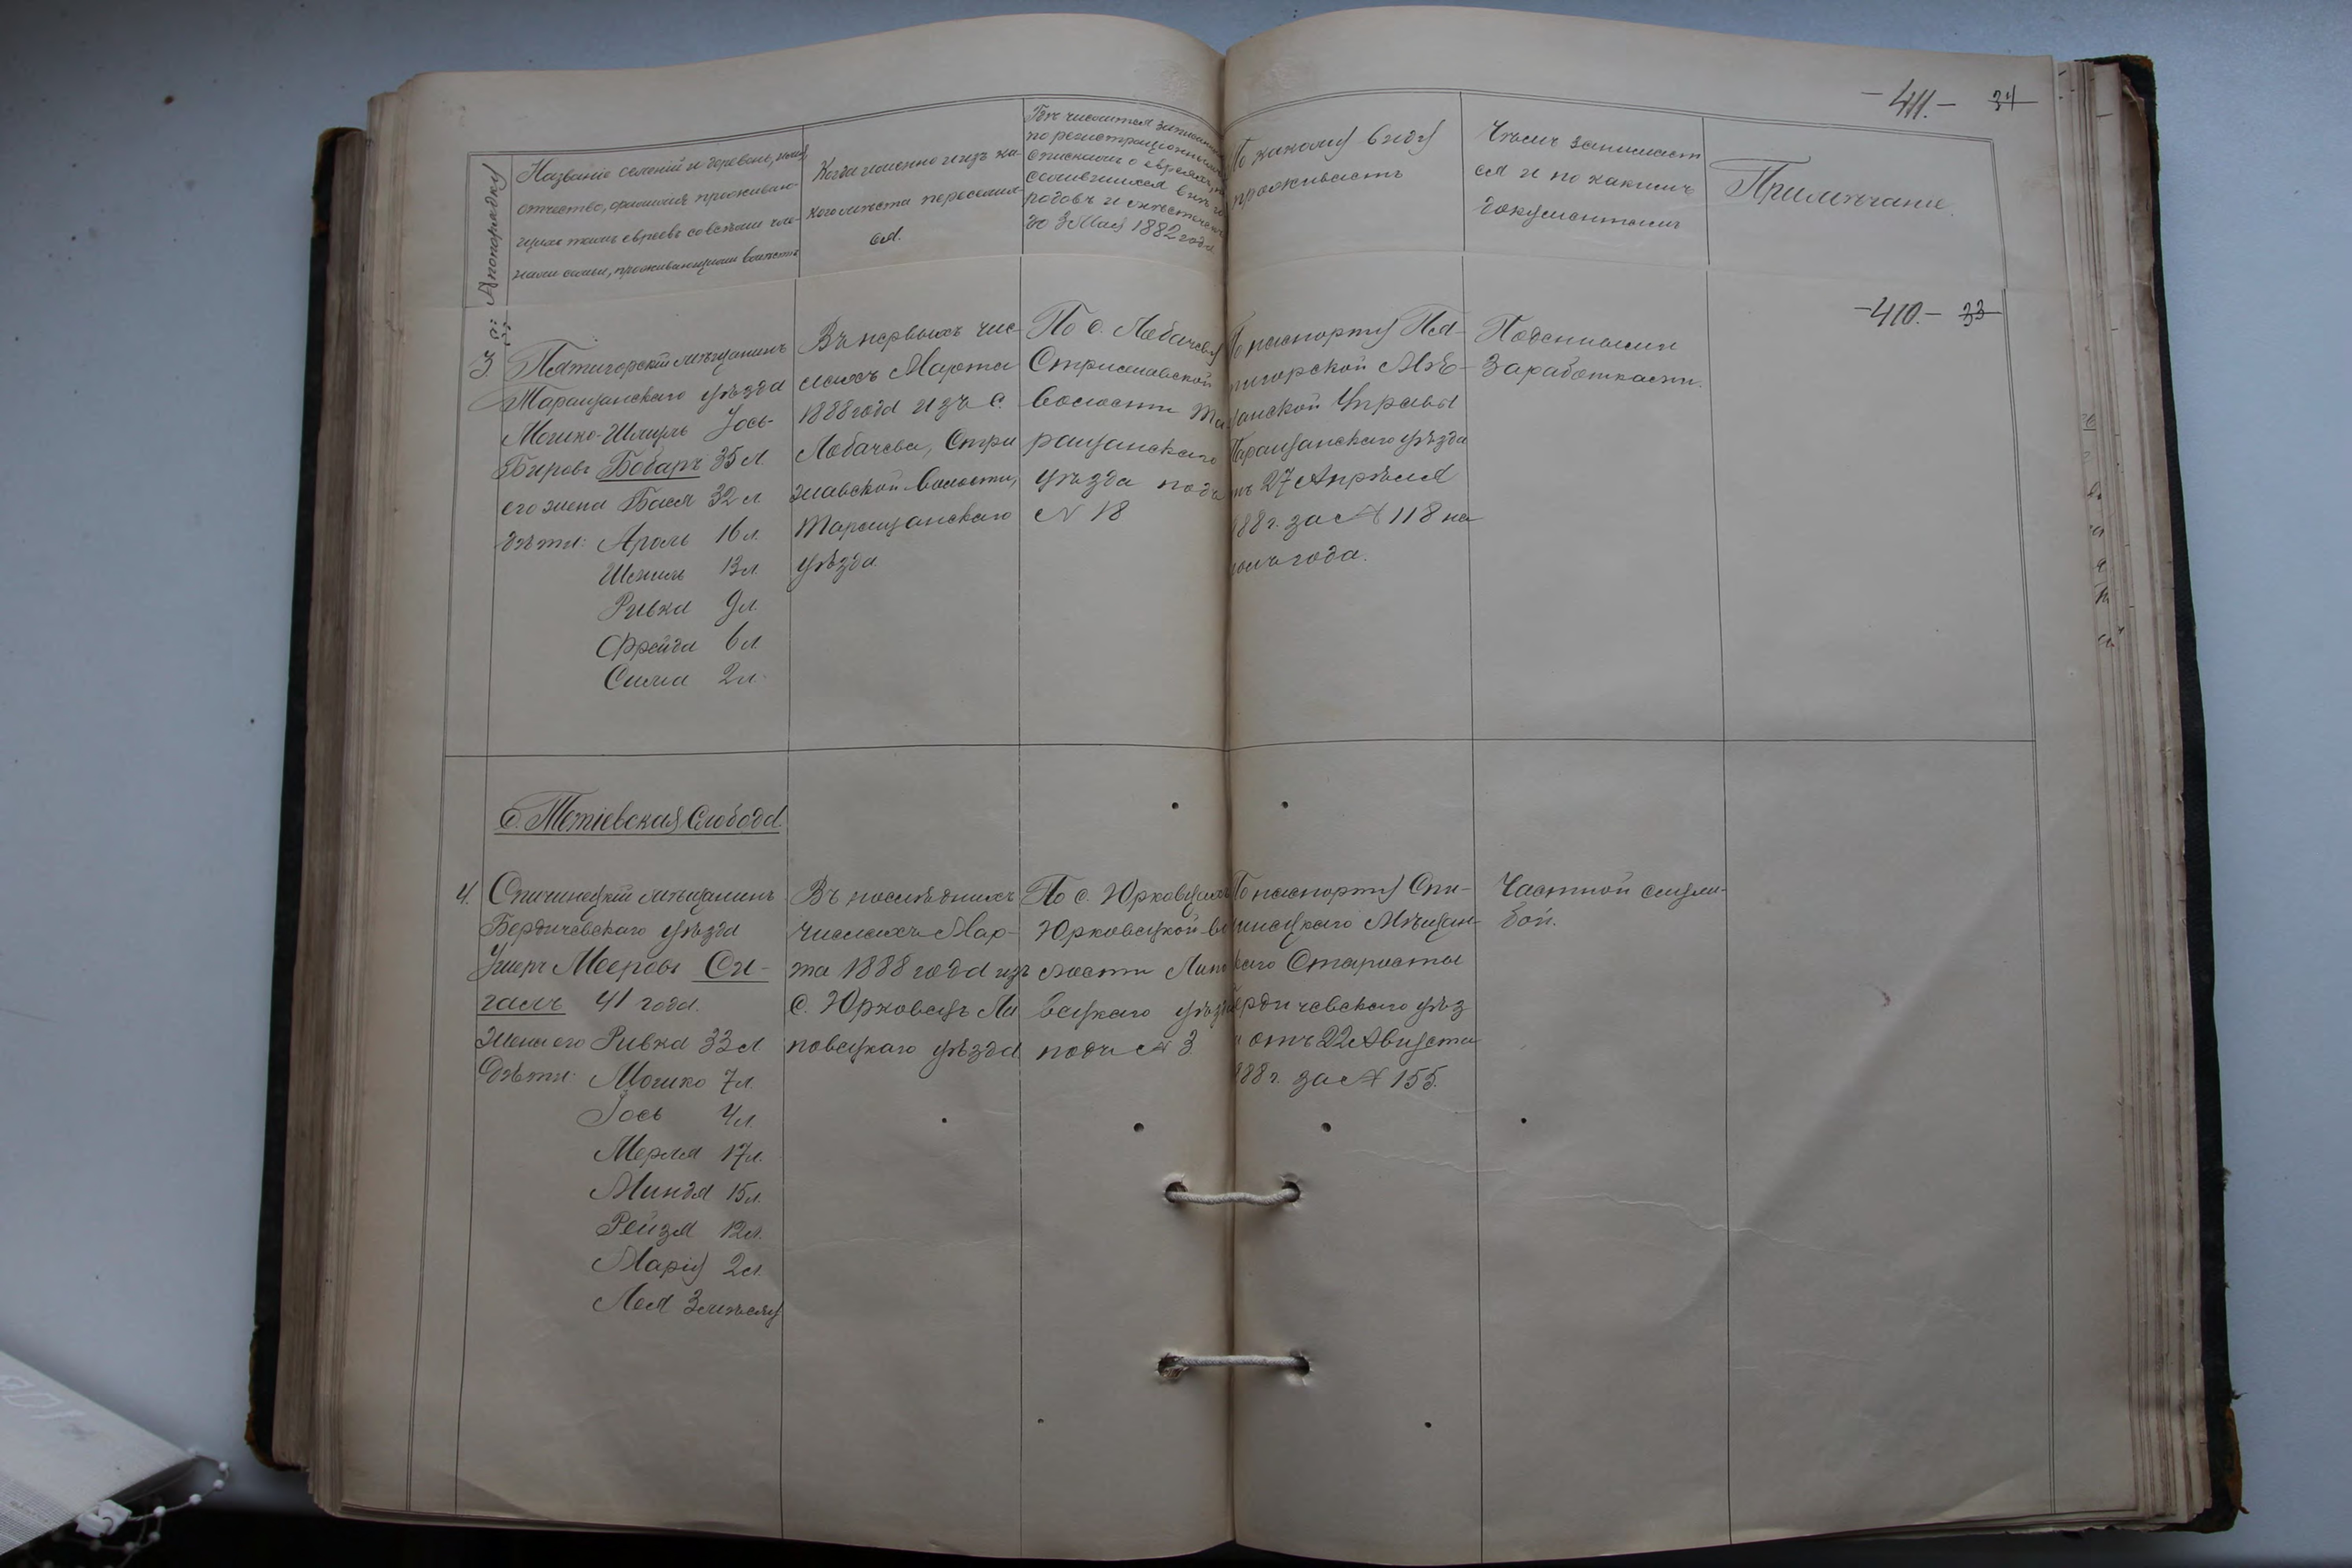 -411.- 34
№ по порядку
Названіе селеній и деревень, имя,
отчество, фамилія проживаю-
щихъ тамъ евреевъ со всѣми чле-
нами семьи, проживающими вмѣстѣ
Когда именно и изъ ка-
кого мѣста переселил-
ся.
Гдѣ числится записаннымъ
по регистраціоннымъ
спискамъ о евреяхъ, по-
селившихся внѣ го-
родовъ и мѣстечекъ
до 3 Мая 1882 года
По какому виду
проживаетъ
Чѣмъ занимает
ся и по какимъ
документамъ
Примѣчаніе.
-410.- 33
3.
Пятигорскій мѣщанинъ
Таращанскаго уѣзда
Мошко-Шмуль Іось-
Беровъ Бобаръ 35 л.
его жена Бася 32 л.
дѣти: Аронъ 16 л.
13 л.
Ривка 9 л.
Фрейда 6 л.
Сима 2 л.
Въ первыхъ чис-
лахъ Марта
1888 года изъ с.
Лобачева, Стри
жавской волости,
Таращанскаго
уѣзда.
По с. Лобачеву
Стрижавской
волости Та-
ращанскаго
уѣзда подъ
№ 18
По паспорту Пя-
тигорской Мѣ-
щанской Управы
Таращанскаго уѣзда
отъ 27 Апрѣля
1888 г. за № 118 на
годъ.
Поденными
заработками.
с. Тетіевская Слобода.
4.
Спичинецкій мѣщанинъ
Бердичевскаго уѣзда
Ушеръ Мееровъ Си-
галъ 41 года.
Жена его Ривка 33 л.
Дѣти: Мошко 7 л.
Іось 4 л.
Мерля 17 л.
Миндя 15 л.
Рейзя 12 л.
Марія 2 л.
Лея 3 мѣсяц
Въ послѣднихъ
числахъ Мар-
та 1888 года изъ
с. Юрковецъ Ли
повецкаго уѣзда
По с. Юрковцамъ
Юрковецкой во
лости Липо
вецкаго уѣзда
подъ № 3.
По паспорту Спи-
чинецкаго Мѣщан-
скаго Старосты
Бердичевскаго уѣз
да отъ 22 Августа
1888 г. за № 155.
Частной служ-
бой.